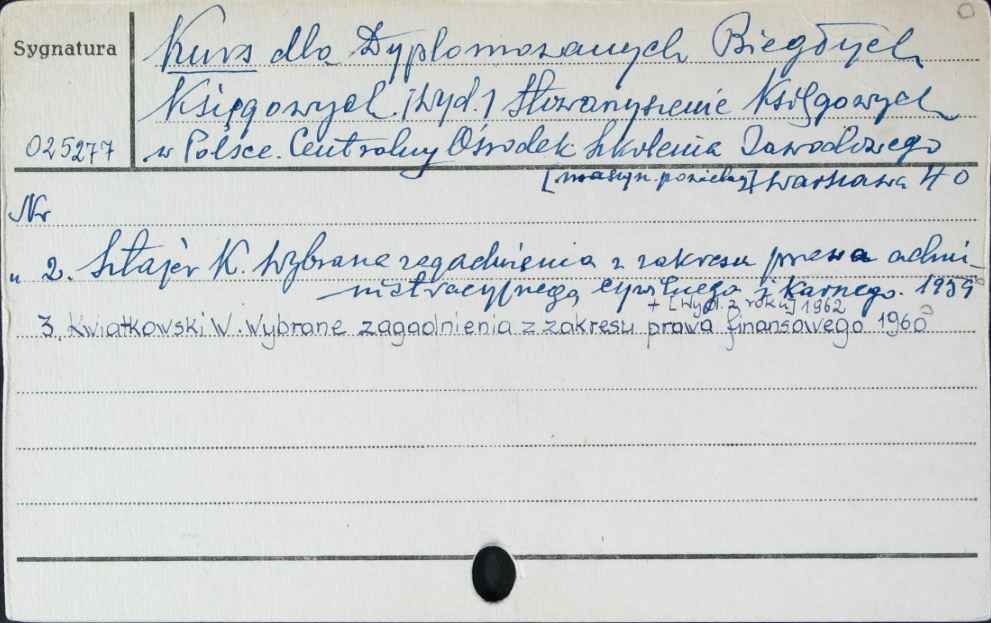 Sygnatura
Kurs dla Dyplomowanych Biegłych
Księgowych. [Wyd.] Stowarzyszenie Księgowych
025277
w Polsce. Centralny Ośrodek Szkolenia Zawodowego
[maszyn. powielany] Warszawa 4°
Nr
" 2. Sztajer K. Wybrane zagadnienia z zakresu prawa admi-
nistracyjnego, cywilnego i karnego. 1959
+ [Wyd. z roku] 1962
3. Kwiatkowski W. Wybrane zagadnienia z zakresu prawa finansowego 1960